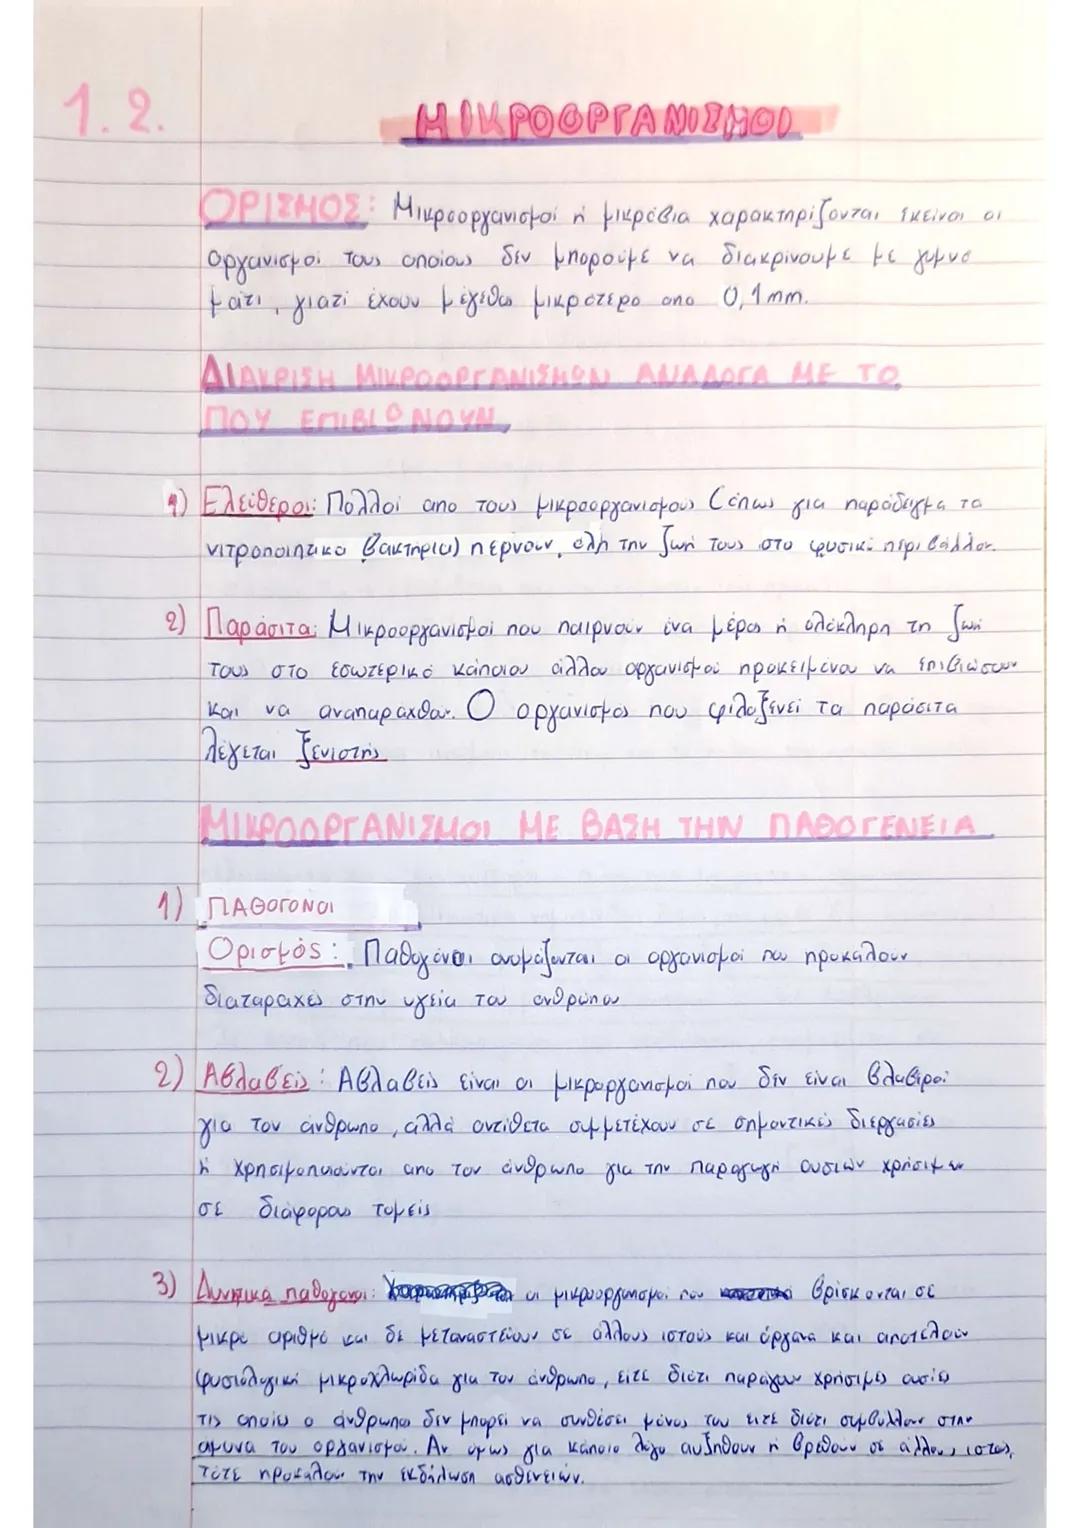 1.2. ΜΙΚΡΟΟΡΓΑΝΙΣΜΟΙ
ΟΡΙΣΜΟΣ: Μικροοργανισμοί ή μικρόβια χαρακτηρίζονται εκείνοι οι
οργανισμοί τους οποίους δεν μπορούμε να διακρίνουμε με γυμνό
μάτι, γιατί έχουν μέγεθος μικρότερο απο 0,1mm.
ΔΙΑΚΡΙΣΗ ΜΙΚΡΟΟΡΓΑΝΙΣΜΩΝ ΑΝΑΛΟΓΑ ΜΕ ΤΟ
ΠΟΥ ΕΠΙΒΙΩΝΟΥΝ
1) Ελεύθεροι: Πολλοί απο τους μικροοργανισμούς (όπως για παράδειγμα τα
νιτροποιητικα βακτήρια) περνουν όλη την ζωή τους στο φυσικό περιβάλλον.
2) Παράσιτα: Μικροοργανισμοί που παιρνουν ένα μέρος ή ολόκληρη τη ζωή
τους στο εσωτερικό κάποιου άλλου οργανισμού προκειμένου να επιβιώσουν
και να αναπαραχθουν. Ο οργανισμός που φιλοξενεί τα παράσιτα
λέγεται ξενιστής
ΜΙΚΡΟΟΡΓΑΝΙΣΜΟΙ ΜΕ ΒΑΣΗ ΤΗΝ ΠΑΘΟΓΕΝΕΙΑ
1) ΠΑΘΟΓΟΝΟΙ
Ορισμός: Παθογόνοι ονομάζονται οι οργανισμοί που προκαλούν
διαταραχές στην υγεία του ανθρώπου
2) Αβλαβείς: Αβλαβείς είναι οι μικροργανισμοί που δεν είναι βλαβεροί
για τον άνθρωπο, αλλά αντίθετα συμμετέχουν σε σημαντικές διεργασίες
ή χρησιμοποιούνται απο τον άνθρωπο για την παραγωγή ουσιών χρήσιμων
σε διάφορους τομείς
3) Δυνητικά παθογόνοι: οι μικροοργανισμοί που βρίσκονται σε
μικρό αριθμό και δε μεταναστεύουν σε άλλους ιστούς και όργανα και αποτελούν
φυσιολογική μικροχλωρίδα για τον άνθρωπο, είτε διότι παράγουν χρήσιμες ουσίες
τις οποίες ο άνθρωπος δεν μπορεί να συνθέσει μόνος του ειτε διότι συμβάλλουν στην
αμυνα του οργανισμού. Αν όμως για κάποιο λόγο αυξηθούν ή βρεθούν σε άλλους ιστούς,
τότε προκαλούν την εκδήλωση ασθενειών.